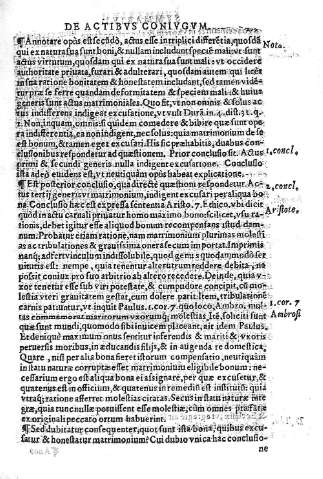 DE ACTIBVS CONIVGVM.
¶ Annotare opus est secūdò, actus esse in triplici differētia, quosdā
qui ex natura sua sunt boni, & nullam includunt speciē mali: vt sunt
actus virtutum, quosdam qui ex natura sua sunt mali: vt occidere
authoritate priuata, furari & adulterari, quosdam autem qui licet
in sua ratione bonitatem & honestatem includant, sed tamen vidētur
præ se ferre quandam deformitatem & speciem mali: & huiusgeneris
sunt actus matrimoniales. Quo fit, vt non omnis & solus actus
indifferens indigeat excusatione, vt vult Durā. in 4. dist. 31. q.
2. Non, inquam, omnis: si quidem comedere & bibere quæ sunt opera
indifferentia, ea non indigent, nec solus: quia matrimonium de se
est bonum, & tamen eget excusari. His sic præhabitis, duabus conclusionibus
respondetur ad quæstionem. Prior conclusio sit. Actus
primi & secundi generis nulla indigent excusatione. Conclusio
ista adeò euidens est, vt neutiquam opus habeat explicatione.
¶ Est posterior conclusio, qua directè quæstioni respondetur. Actus
tertij generis vt matrimonium, indigent excusari per aliqua bona.
Conclusio hæc est expressa sententia Aristo. 7. Ethico. vbi dicit
quòd in actu carnali priuatur homo maximo bono scilicet, vsu rationis,
debet igitur esse aliquod bonum recompensans istud damnum.
Probatur etiam ratione, nam matrimonium plurimas molestias
ac tribulationes & grauissima onera secum importat. Imprimis
nanq; adfert vinculum indissolubile, quod genus quoddam seruitutis
est: nempe, quia tenentur alterutrum reddere debita, ne
possit coniux pro suo arbitrio ab altero recedere. Deinde, quia vxor
tenetur esse sub viri potestate, & cum pudore concipit, cū molestia
vteri grauitatem gestat, cum dolore parit. Item, tribulationē
carnis patiuntur, vt inquit Paulus. 1. cor. 7. quo loco Ambro. multas
commemorat matrimonij vxorumq; molestias, Itē, soliciti sunt
quæ sunt mundi, quomodo sibi inuicem placeant, ait idem Paulus.
Et deniq; maximum onus sentitur in ferendis & mariti & vxoris
peruersis moribus, in educandis filijs, & in augenda re domestica.
Quare, nisi per alia bona fieret istorum compensatio, neutiquàm
in statu naturæ corruptæ esset matrimonium eligibile bonum: necessarium
ergo est aliqua bona ei assignare, per quæ excusetur, &
quatenus est in officium, & quatenus in remedium est institutū: quia
vtraq; ratione afferre molestias citatas. Secus in statu naturæ integræ,
quia tunc nullæ potuissent esse molestiæ, cùm omnes præfatæ
ex originali peccato ortum habuerint.
¶ Sed dubitatur consequenter, quot sunt ista bona, quibus excusatur
& honestatur matrimonium? Cui dubio vnica hac conclusione
Nota.
1. concl.
2. concl.
Aristote.
1. cor. 7
Ambrosi